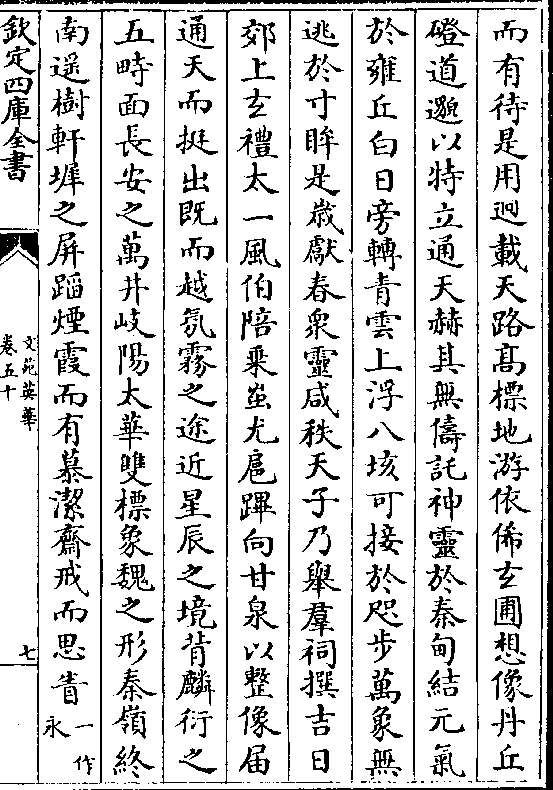 而有待是用迥載天路高標地游依俙玄圃想像丹丘
磴道邈以特立通天赫其無儔託神靈於秦甸結元氣
於雍丘白日旁轉青雲上浮八垓可接於咫步萬象無
逃於寸眸是歲獻春衆靈咸秩天子乃舉羣祠撰吉日
郊上玄禮太一風伯陪乗蚩尤扈蹕向甘泉以整像届
通天而挺出既而越氛霧之途近星辰之境背麟衍之
五畤面長安之萬井岐陽太華雙標象魏之形秦嶺終
南遥樹軒墀之屏蹈煙霞而有慕潔齋戒而思眚一作永
欽定四庫全書
文苑英華
卷五十
七